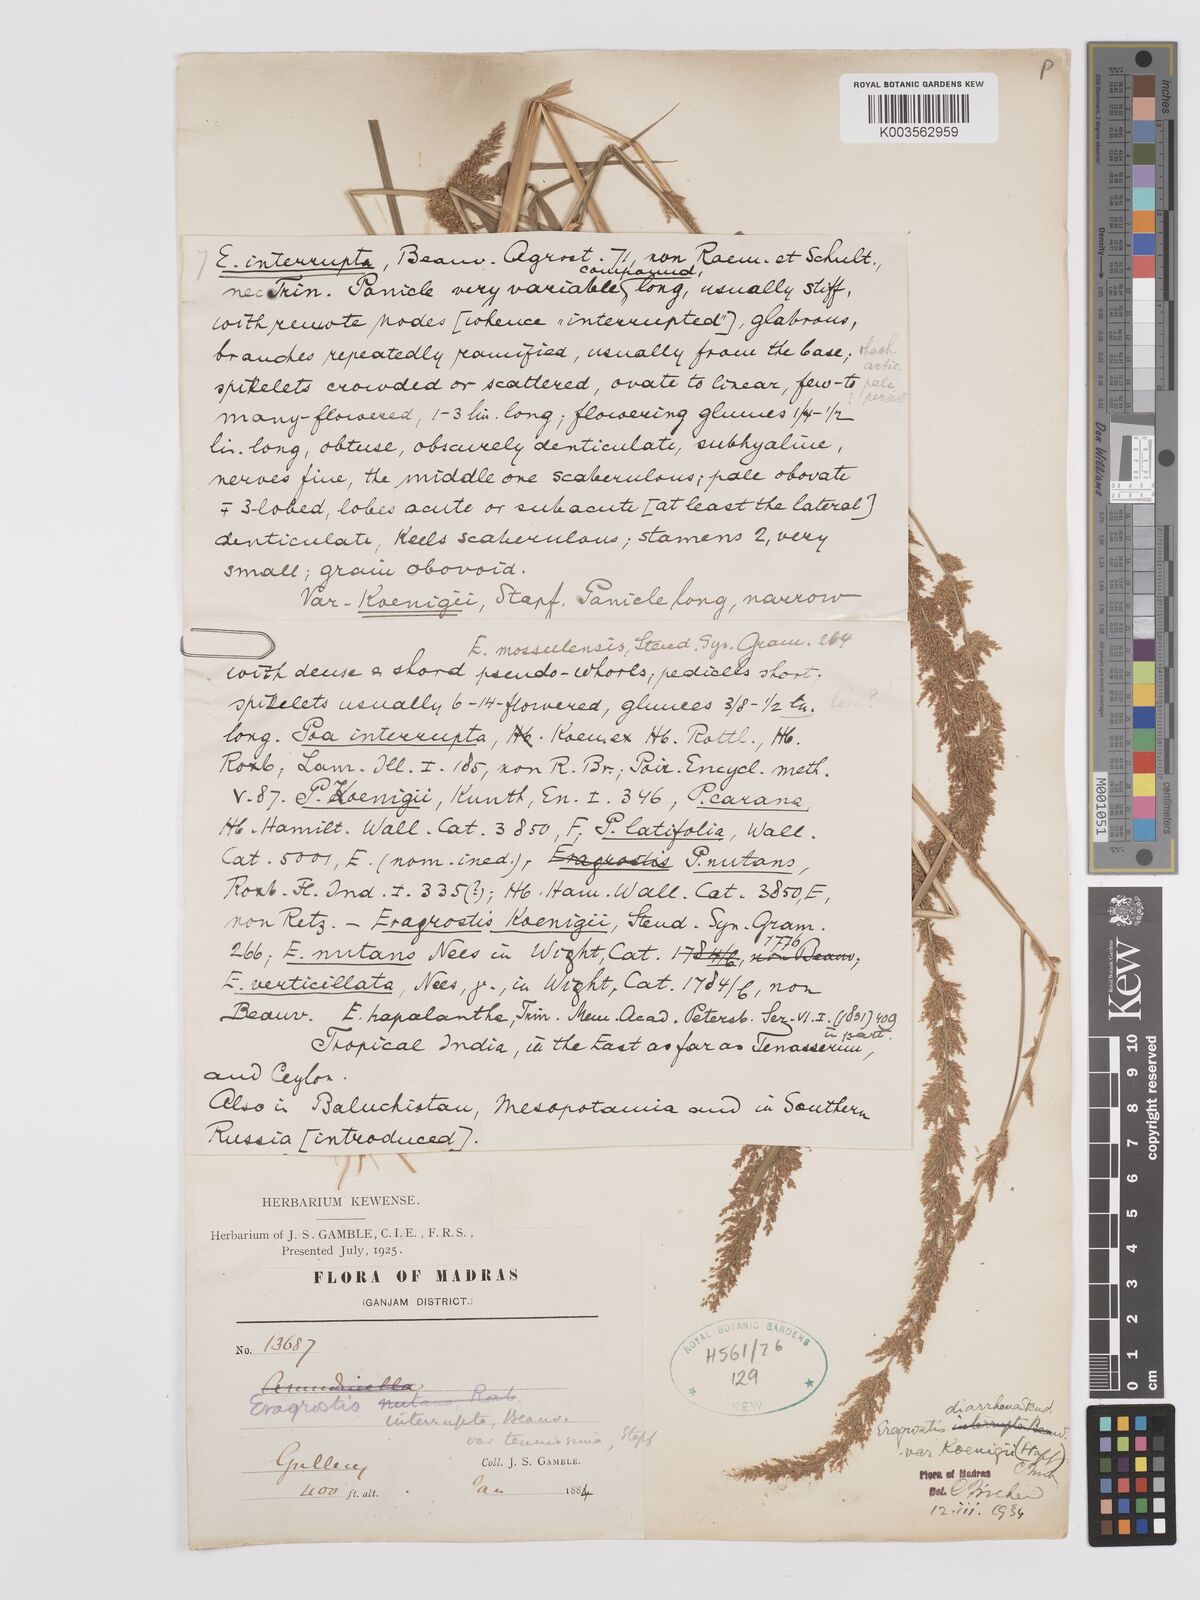 P
ROYAL BOTANIC GARDENS KEW
K003562959
E. interrupta, Beauv. Agrost. 71, non Roem. et Schult.,
nec Trin. Panicle very variable, compound, long, usually stiff,
with remote nodes [whence "interrupted"], glabrous,
branches repeatedly ramified, usually from the base;
spikelets crowded or scattered, ovate to linear, few-to
many-flowered, 1-3 lin. long; flowering glumes 1/4-1/2
lin. long, obtuse, obscurely denticulate, subhyaline,
nerves fine, the middle one scaberulous; pale obovate
∓ 3-lobed, lobes acute or subacute [at least the lateral]
denticulate, keels scaberulous; stamens 2, very
small; grain obovoid.
rhach.
artic.
pale
persist
Var- Koenigii, Stapf. Panicle long, narrow
E. mossulensis, Steud. Syn. Gram. 264
with dense & short pseudo-whorls; pedicels short;
spikelets usually 6-14-flowered, glumes 3/8-1/2 lin. lin?
long. Poa interrupta, Hb. Koen. ex Hb. Rottl., Hb.
Roxb, Lam. Ill. I. 185, non R. Br.; Poir. Encycl. meth.
V. 87. P. Koenigii, Kunth, En. I. 346, P. carana,
Hb. Hamilt. Wall. Cat. 3850, F, P. latifolia, Wall.
Cat. 5001, E. (nom. ined.), Eragrostis P. nutans,
Roxb. Fl. Ind. I. 335(?); Hb. Ham. Wall. Cat. 3850, E,
non Retz. - Eragrostis Koenigii, Steud. Syn. Gram.
266; E. nutans Nees in Wight, Cat. 1784/b, 1776 non Beauv;
E. verticillata, Nees, jr., in Wight, Cat. 1784/b, non
Beauv. E. hapalantha, Trin. Mem. Acad. Petersb. Ser. VI. I. (1831) 409
in part.
Tropical India, in the East as far as Tenasserim,
and Ceylon.
Also in Baluchistan, Mesopotamia and in Southern
Russia [introduced].
HERBARIUM KEWENSE.
Herbarium of J. S. GAMBLE, C.I.E., F.R.S.,
Presented July, 1925.
FLORA OF MADRAS
(GANJAM DISTRICT.)
No. 13687
Arundinella
Eragrostis nutans Roxb.
interrupta, Beauv.
var tenuissima, Stapf
Gullery
Coll. J. S. GAMBLE.
400 ft. alt. Jan 1884
ROYAL BOTANIC GARDENS
H561/76
129
KEW
diarrhena Steud.
Eragrostis interrupta Beauv.
var. Koenigii (Stapf)
Flora of Madras
Det. C Fischer
12.iii.1934
inch
OSD Illuminants, mm
Density
Don Williams
M001051
centimeters
cm
Kew
Royal Botanic Gardens
0 1 2 3 4 5 6 7 8 9 10
cm
copyright reserved